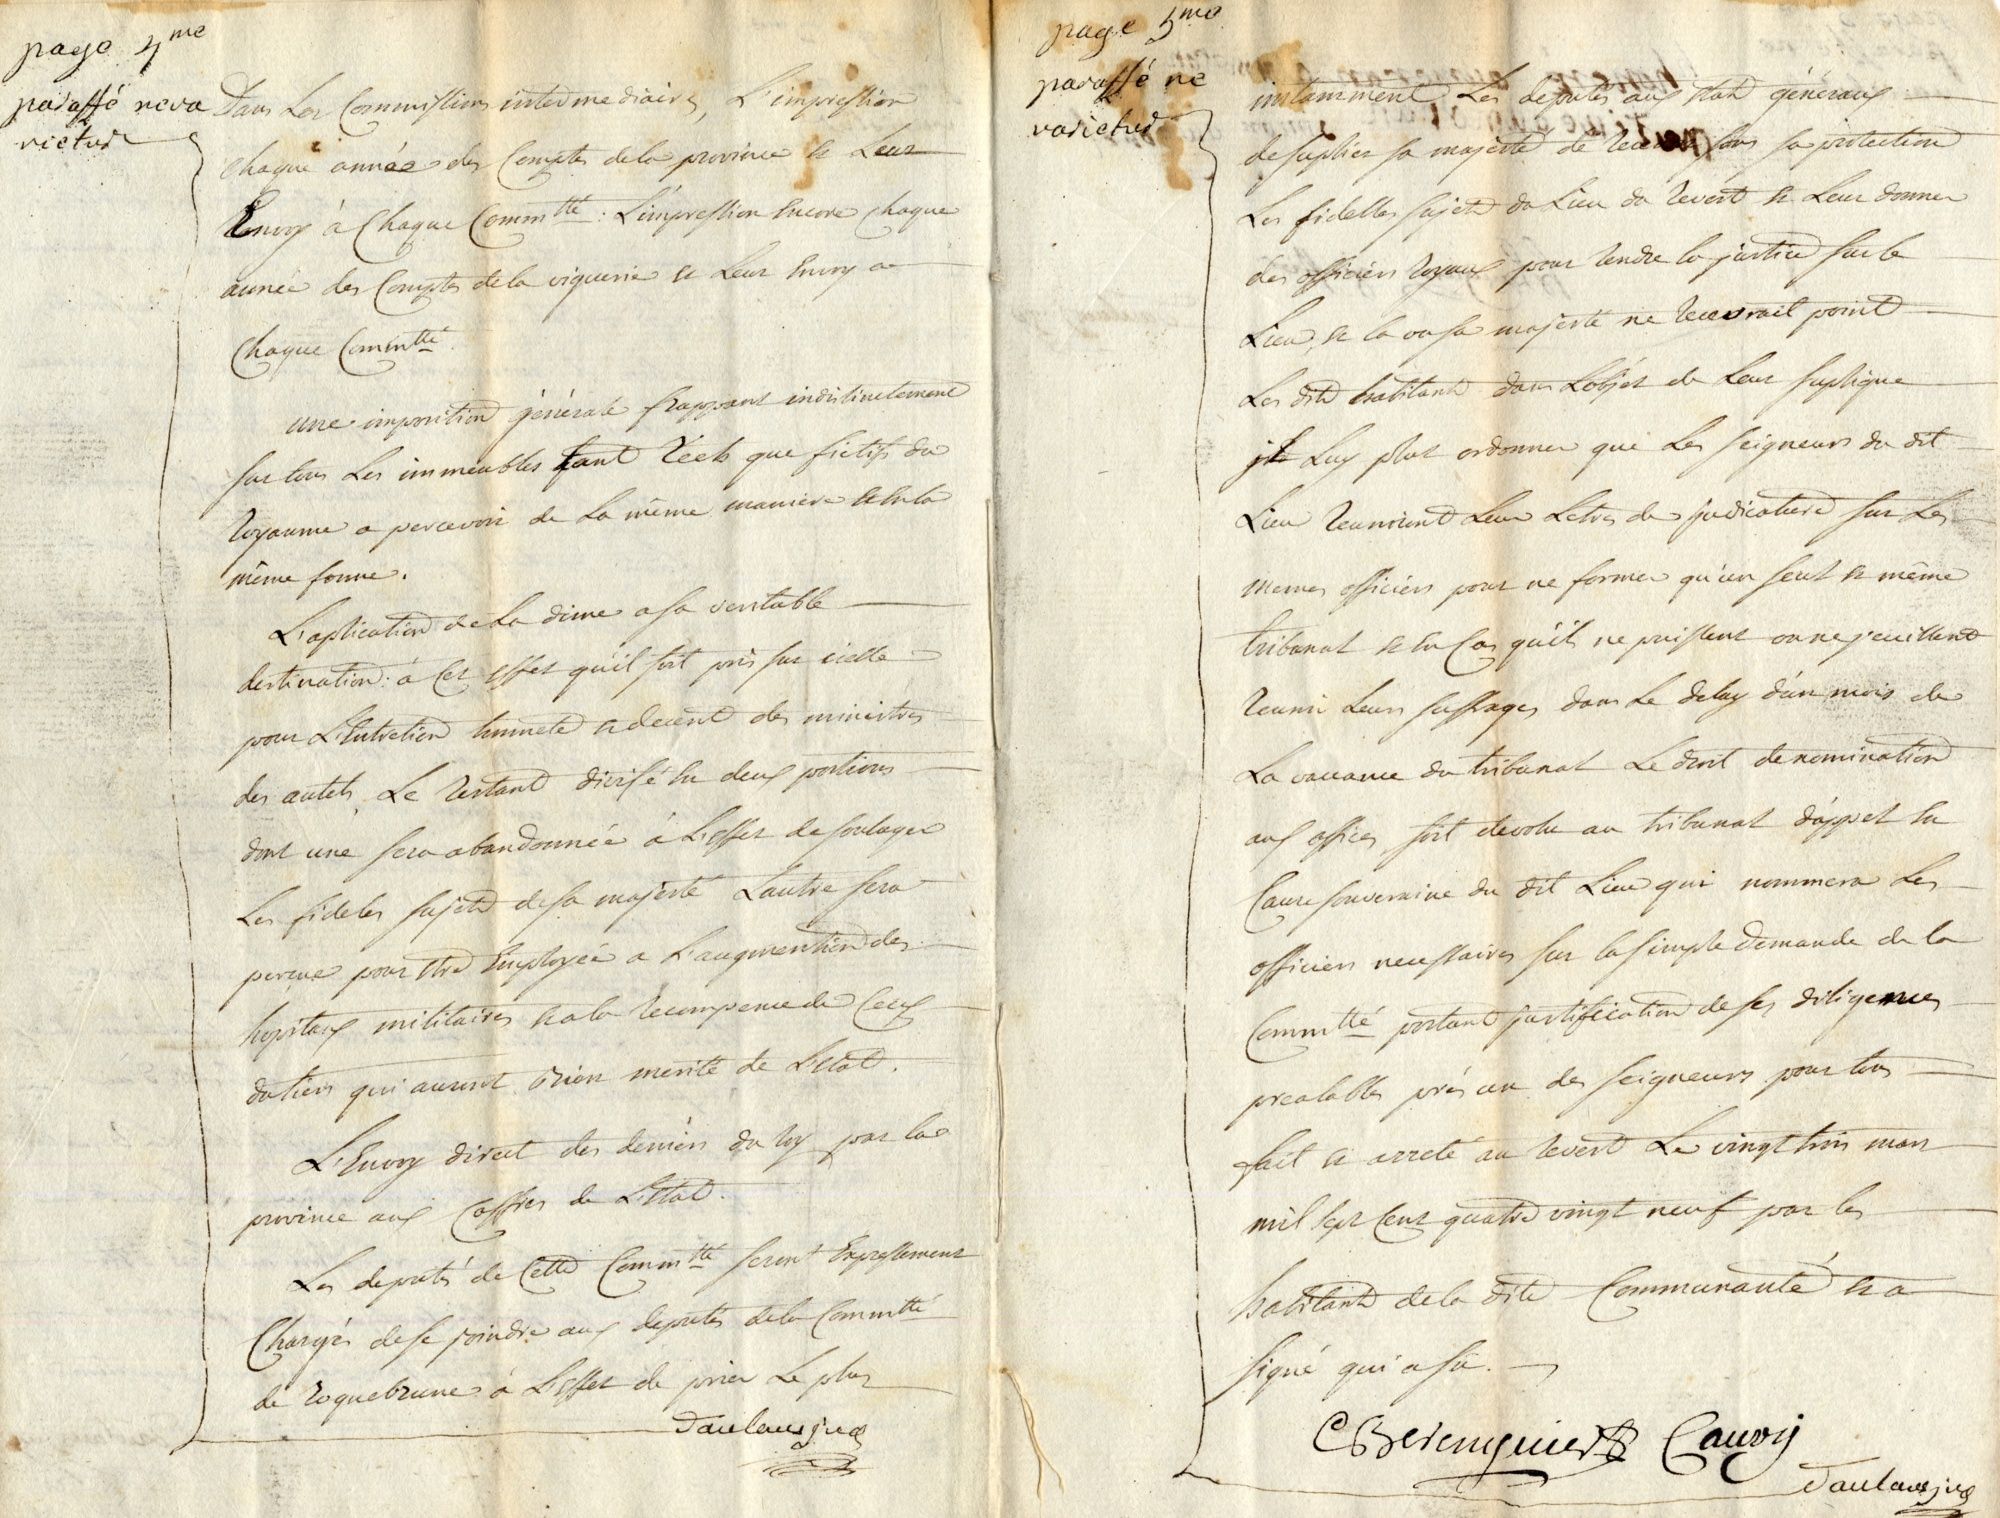 page 4me
paraffé neva
rietur
Dans Les Commissions intermediaires, L'impression
chaque année des Comptes de la province & Leur
Envoy à Chaque Commtté : L'impression Encore chaque
année des Comptes de la viguerie & Leur Envoy a
chaque Commtté
une imposition générale frappant indistinctement
sur tous Les immeubles tant réels que fictifs du
royaume a percevoir de La même maniere & en la
même forme.
L'aplication de La dime a sa veritable
destination : à Cet effet qu'il soit pris sur icelle
pour L'Entretien honnete & decent des ministres
des autels, Le restant divisé En deux portions
dont une sera abandonnée à L'Effet de soulager
Les fideles sujets de sa majesté L'autre sera
perçue pour etre Employée a L'augmention des
hopitaux militaires & a la recompense de Ceux
qui auront bien merité de L'Etat.
L'Envoy direct des deniers du roy par la
province aux Coffres de L'Etat.
Les deputés de Cette Commtté seront Expressement
Chargés de se joindre aux deputés de la Commtté
de roquebrune à L'Effet de prier Le plus
Daulaus juge
page 5me
paraffé ne
varietur
instamment Les deputés aux etats généraux
de suplier sa majesté de recevoir sous sa protection
Les fidelles sujets du Lieu du revest & Leur donner
des officiers royaux pour rendre la justice sur le
Lieu, & la ou sa majesté ne recevrait point
Les dits habitants dans L'objet de Leur suplique
il Luy plut ordonner que Les seigneurs du dit
Lieu reunirent Leur Letres de judicature sur Les
memes officiers pour ne former qu'un seul & même
tribunal & En Cas qu'ils ne puissent ou ne veuillent
reunir Leurs suffrages dans Le delay d'un mois de
La vacance du tribunal Le droit de nomination
aux offices soit devolu au tribunal d'appel En
Cause souveraine du dit Lieu qui nommera Les
officiers necessaires sur la simple demande de la
Commtté portant justification de ses diligences
prealables près un des seigneurs pour tous
fait & arreté au revest Le vingt trois mars
mil sept Cent quatre vingt neuf par les
habitants de la dite Communauté & a
signé qui a su.
C Berenguier Cauvy
Daulaus juge